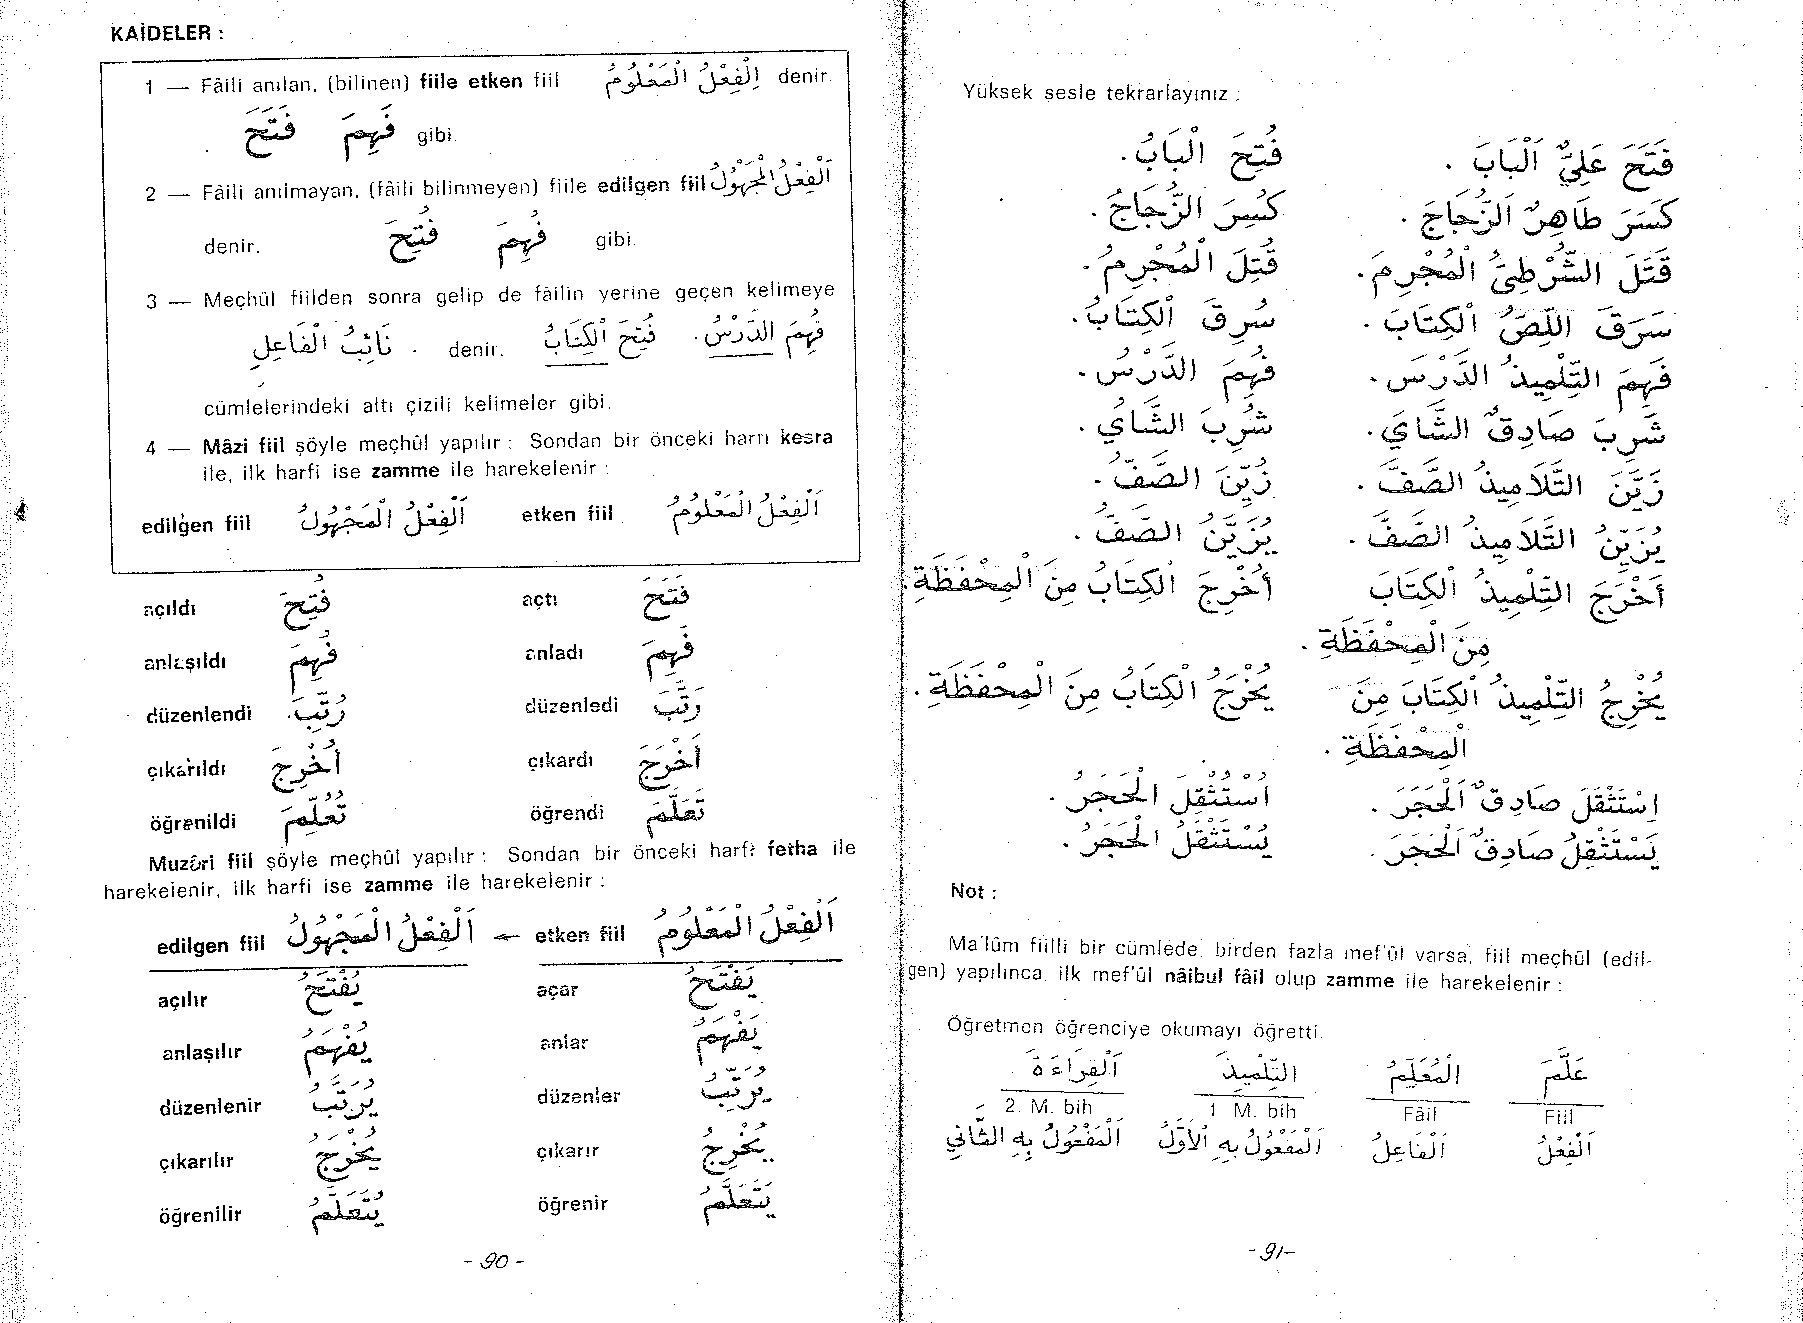 KAİDELER :
1 — Fâili anılan, (bilinen) fiile etken fiil اَلْفِعْلُ الْمَعْلُومُ denir.
فَتَحَ فَهِمَ gibi.
2 — Fâili anılmayan, (fâili bilinmeyen) fiile edilgen fiil اَلْفِعْلُ الْمَجْهُولُ
denir. فُتِحَ فُهِمَ gibi.
3 — Meçhûl fiilden sonra gelip de fâilin yerine geçen kelimeye
نَائِبُ الْفَاعِلِ . denir. فُتِحَ اَلْكِتَابُ فُهِمَ الدَّرْسُ .
cümlelerindeki altı çizili kelimeler gibi.
4 — Mâzi fiil şöyle meçhûl yapılır : Sondan bir önceki harfi kesra
ile, ilk harfi ise zamme ile harekelenir :
edilgen fiil اَلْفِعْلُ الْمَجْهُولُ etken fiil اَلْفِعْلُ الْمَعْلُومُ
açıldı فُتِحَ açtı فَتَحَ
anlaşıldı فُهِمَ anladı فَهِمَ
düzenlendi رُتِّبَ düzenledi رَتَّبَ
çıkarıldı أُخْرِجَ çıkardı أَخْرَجَ
öğrenildi تُعُلِّمَ öğrendi تَعَلَّمَ
Muzâri fiil şöyle meçhûl yapılır : Sondan bir önceki harfi fetha ile
harekelenir, ilk harfi ise zamme ile harekelenir :
edilgen fiil اَلْفِعْلُ الْمَجْهُولُ ← etken fiil اَلْفِعْلُ الْمَعْلُومُ
açılır يُفْتَحُ açar يَفْتَحُ
anlaşılır يُفْهَمُ anlar يَفْهَمُ
düzenlenir يُرَتَّبُ düzenler يُرَتِّبُ
çıkarılır يُخْرَجُ çıkarır يُخْرِجُ
öğrenilir يُتَعَلَّمُ öğrenir يَتَعَلَّمُ
- 90 -
Yüksek sesle tekrarlayınız :
فَتَحَ عَلِيٌّ اَلْبَابَ . فُتِحَ الْبَابُ .
كَسَرَ طَاهِرٌ اَلزُّجَاجَ . كُسِرَ الزُّجَاجُ .
قَتَلَ الشُّرْطِيُّ الْمُجْرِمَ . قُتِلَ الْمُجْرِمُ .
سَرَقَ اللِّصُّ الْكِتَابَ . سُرِقَ الْكِتَابُ .
فَهِمَ التِّلْمِيذُ الدَّرْسَ . فُهِمَ الدَّرْسُ .
شَرِبَ صَادِقٌ الشَّايَ . شُرِبَ الشَّايُ .
زَيَّنَ التَّلَامِيذُ الصَّفَّ . زُيِّنَ الصَّفُّ .
يُزَيِّنُ التَّلَامِيذُ الصَّفَّ . يُزَيَّنُ الصَّفُّ .
أَخْرَجَ التِّلْمِيذُ الْكِتَابَ أُخْرِجَ الْكِتَابُ مِنَ الْمِحْفَظَةِ .
مِنَ الْمِحْفَظَةِ .
يُخْرِجُ التِّلْمِيذُ الْكِتَابَ مِنَ يُخْرَجُ الْكِتَابُ مِنَ الْمِحْفَظَةِ .
الْمِحْفَظَةِ .
اِسْتَثْقَلَ صَادِقٌ اَلْحَجَرَ . اُسْتُثْقِلَ الْحَجَرُ .
يَسْتَثْقِلُ صَادِقٌ اَلْحَجَرَ . يُسْتَثْقَلُ الْحَجَرُ .
Not :
Ma'lûm fiilli bir cümlede, birden fazla mef'ûl varsa, fiil meçhûl (edil-
gen) yapılınca, ilk mef'ûl nâibul fâil olup zamme ile harekelenir :
Öğretmen öğrenciye okumayı öğretti.
عَلَّمَ الْمُعَلِّمُ التِّلْمِيذَ اَلْقِرَاءَةَ
2. M. bih 1 M. bih Fâil Fiil
اَلْفِعْلُ اَلْفَاعِلُ اَلْمَفْعُولُ بِهِ الْأَوَّلُ اَلْمَفْعُولُ بِهِ الثَّانِي
- 91 -